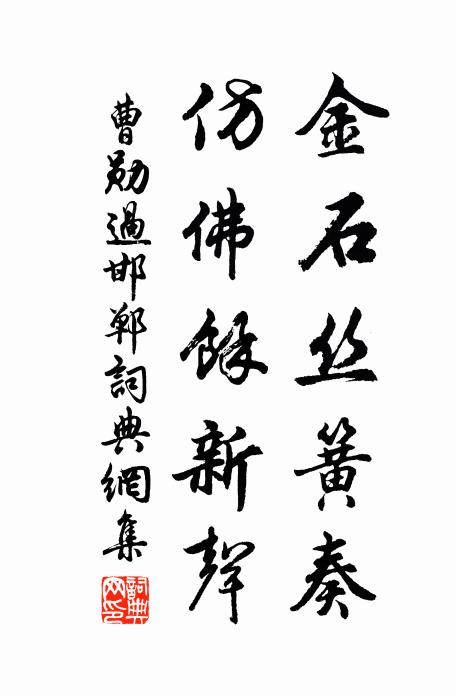 金石丝簧奏
仿佛馀新声
曹勋過邯郸詞典網集
詞典网印